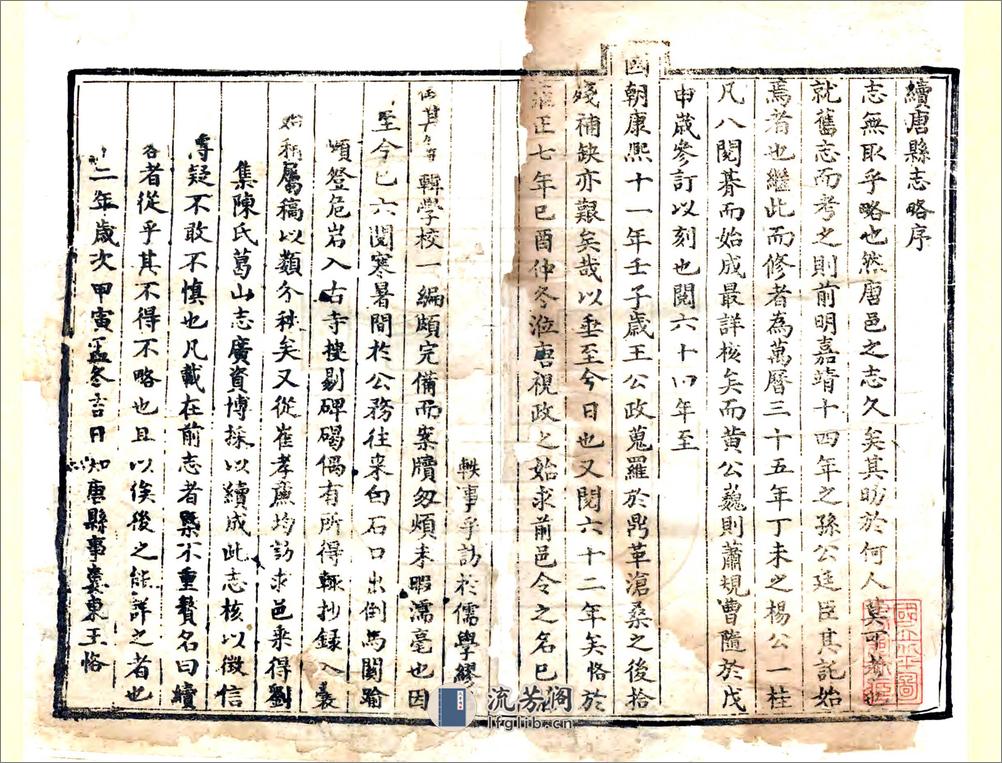 續唐縣志略序
志無取乎略也然唐邑之志久矣其昉於何人莫可攷也
就舊志而考之則前明嘉靖十四年之孫公廷臣其託始
焉者也繼此而修者為萬曆三十五年丁未之楊公一桂
凡八閱朞而始成最詳核矣而黃公巍則蕭規曹隨於戊
申歲參訂以刻也閱六十四年至
國朝康熙十一年壬子歲王公政蒐羅於鼎革滄桑之後拾
殘補缺亦艱矣哉以垂至今日也又閱六十二年矣恪於
雍正七年己酉仲冬涖唐視政之始求前邑令之名已
軼事乎訪於儒學繆
輯學校一編頗完備而案牘匆煩未暇濡毫也因
至今已六閱寒暑間於公務往來向石口出倒馬關踰
頃登危岩入古寺搜剔碑碣偶有所得輒抄錄入囊
始稱屬稿以類分秩矣又從崔孝廉均訪求邑乘得劉
集陳氏葛山志廣資博採以續成此志核以徵信
傳疑不敢不慎也凡載在前志者槩不重贅名曰續
畧者從乎其不得不略也且以俟後之能詳之者也
二年歲次甲寅孟冬吉日知唐縣事婁東王恪
流芳阁
lfglib.cn